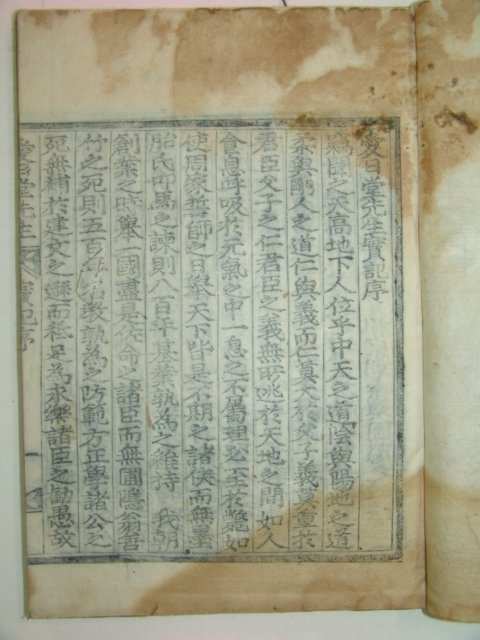 愛日堂先生實記序
竊聞之天高地下人位乎中天之道陰與陽地之道
柔與剛人之道仁與義而仁莫大於父子義莫重於
君臣父子之仁君臣之義無所逃於天地之間如人
食息呼吸於元氣之中一息之不屬理必至於斃如
使周家誓師之日擧天下皆是不期之諸侯而無墨
胎氏叩馬之諫則八百年基業孰爲之維持 我朝
創業之時擧一國盡是佐命之諸臣而無圃隱翁善
竹之死則五百 治敎孰爲之防範方正學諸公之
死無補於建文之遜而秪足爲永樂諸臣之勸愚故
愛日堂先生 實記序